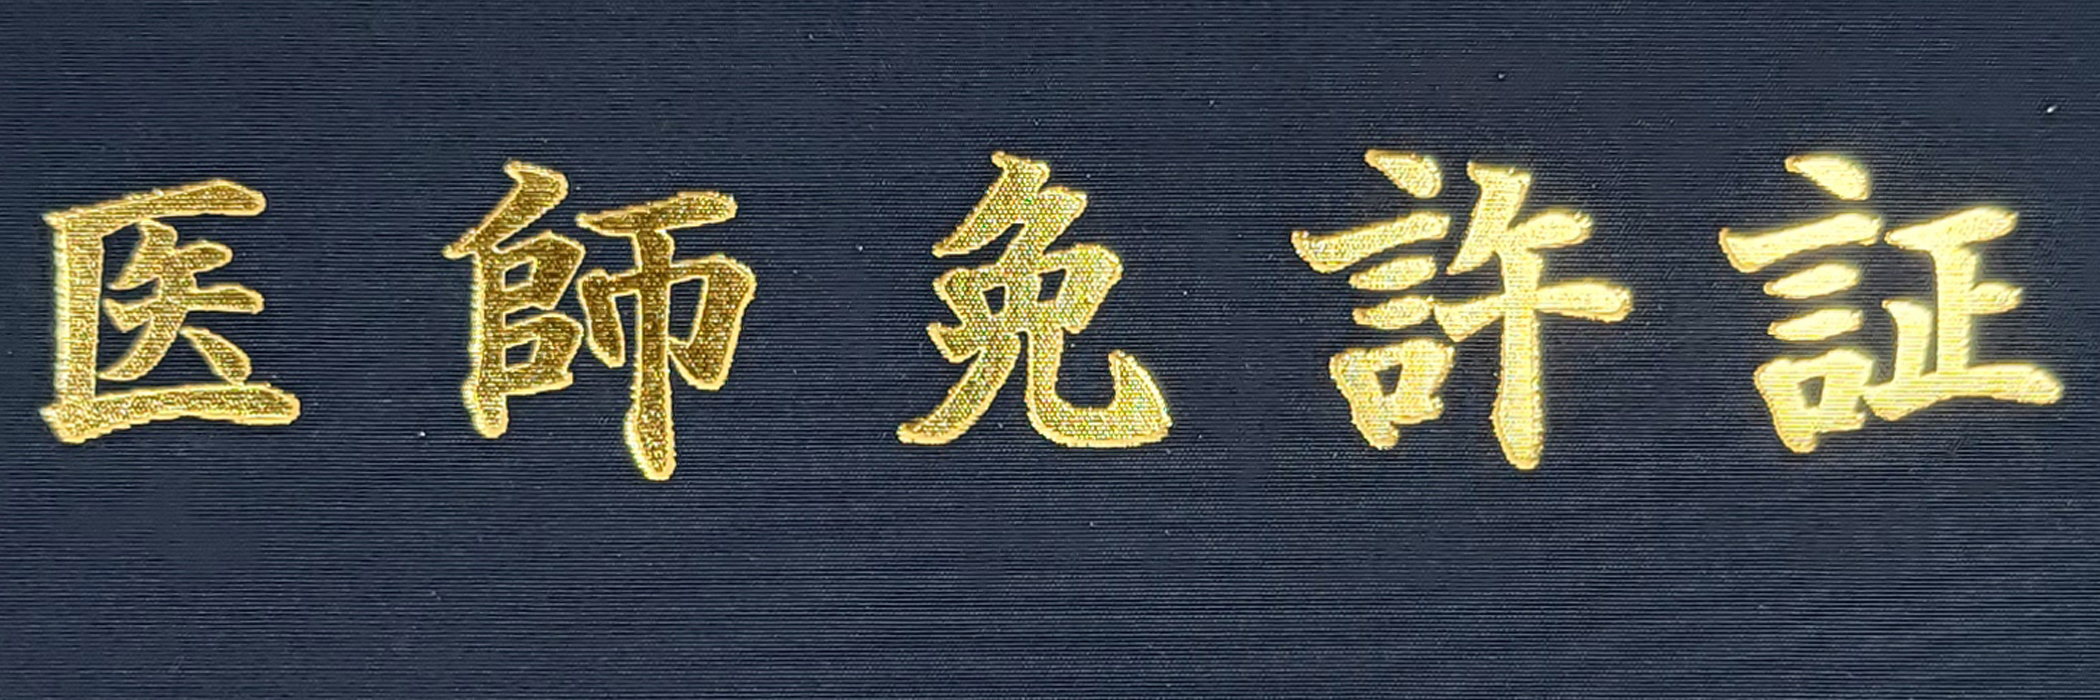 医師免許証